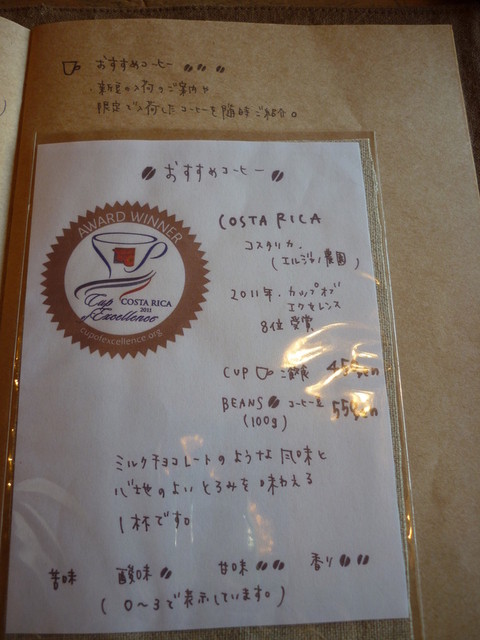 おすすめコーヒー
・新豆の入荷のご案内や
限定で入荷したコーヒーを随時ご紹介。
おすすめコーヒー
AWARD WINNER
Cup of Excellence
COSTA RICA
2011
cupofexcellence.org
COSTA RICA
コスタリカ.
農園)
2011年. カップオブ
エクセレンス
8位 受賞
CUP
BEANS コーヒー豆 550yen
(100g)
ミルクチョコレートのような風味と
心地のよいとろみを味わえる
1杯です。
苦味 酸味 甘味 香り
(0〜3で表示しています。)